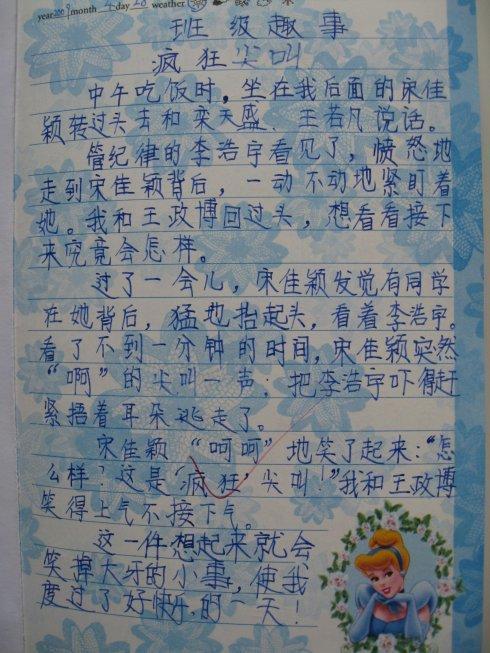 year 2009 month 4 day 28 weather
班级趣事
疯狂尖叫
中午吃饭时，坐在我后面的宋佳
颖转过头去和栾天盛、王若凡说话。
管纪律的李浩宇看见了，愤怒地
走到宋佳颖背后，一动不动地紧盯着
她。我和王政博回过头，想看看接下
来究竟会怎样。
过了一会儿，宋佳颖发觉有同学
在她背后，猛地抬起头，看着李浩宇。
看了不到一分钟的时间，宋佳颖突然
“啊”的尖叫一声，把李浩宇吓得赶
紧捂着耳朵逃走了。
宋佳颖“呵呵”地笑了起来：“怎
么样？这是‘疯狂’尖叫！”我和王政博
笑得上气不接下气。
这一件想起来就会
笑掉大牙的小事，使我
度过了好快乐的一天！